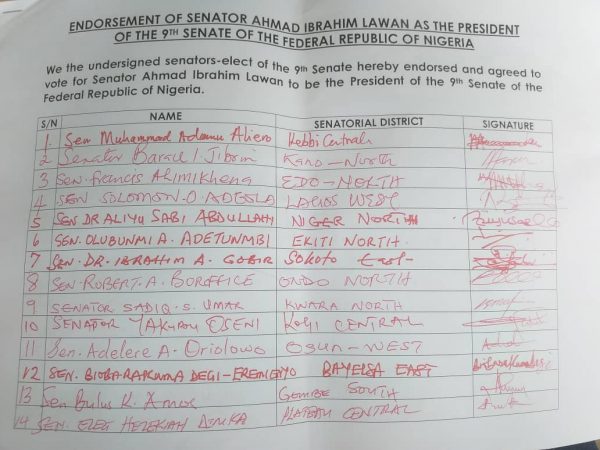 ENDORSEMENT OF SENATOR AHMAD IBRAHIM LAWAN AS THE PRESIDENT
OF THE 9TH SENATE OF THE FEDERAL REPUBLIC OF NIGERIA
We the undersigned senators-elect of the 9th Senate hereby endorsed and agreed to
vote for Senator Ahmad Ibrahim Lawan to be the President of the 9th Senate of the
Federal Republic of Nigeria.
S/N NAME SENATORIAL DISTRICT SIGNATURE
1 Sen Muhammad Adamu Aliero Kebbi Central
2 Senator Barau I. Jibrin KANO-NORTH
3 Sen. Francis Alimikhena EDO-NORTH
4 SEN SOLOMON. O ADEOLA LAGOS WEST
5 SEN DR ALIYU SABI ABDULLAHI NIGER NORTH
6 SEN. OLUBUNMI A. ADETUNMBI EKITI NORTH
7 SEN. DR. IBRAHIM A. GOBIR Sokoto East
8 SEN. ROBERT. A. BOROFFICE ONDO NORTH
9 SENATOR SADIQ. S. UMAR KWARA NORTH
10 SENATOR YAKUBU OSENI KOGI CENTRAL
11 Sen. Adelere A. Oriolowo OSUN-WEST
12 SEN. BIOBARAKUMA DEGI-EREMIENYO BAYELSA EAST
13 Sen Bulus K. Amos GOMBE SOUTH
14 SEN. HEZEKIAH DIMKA PLATEAU CENTRAL